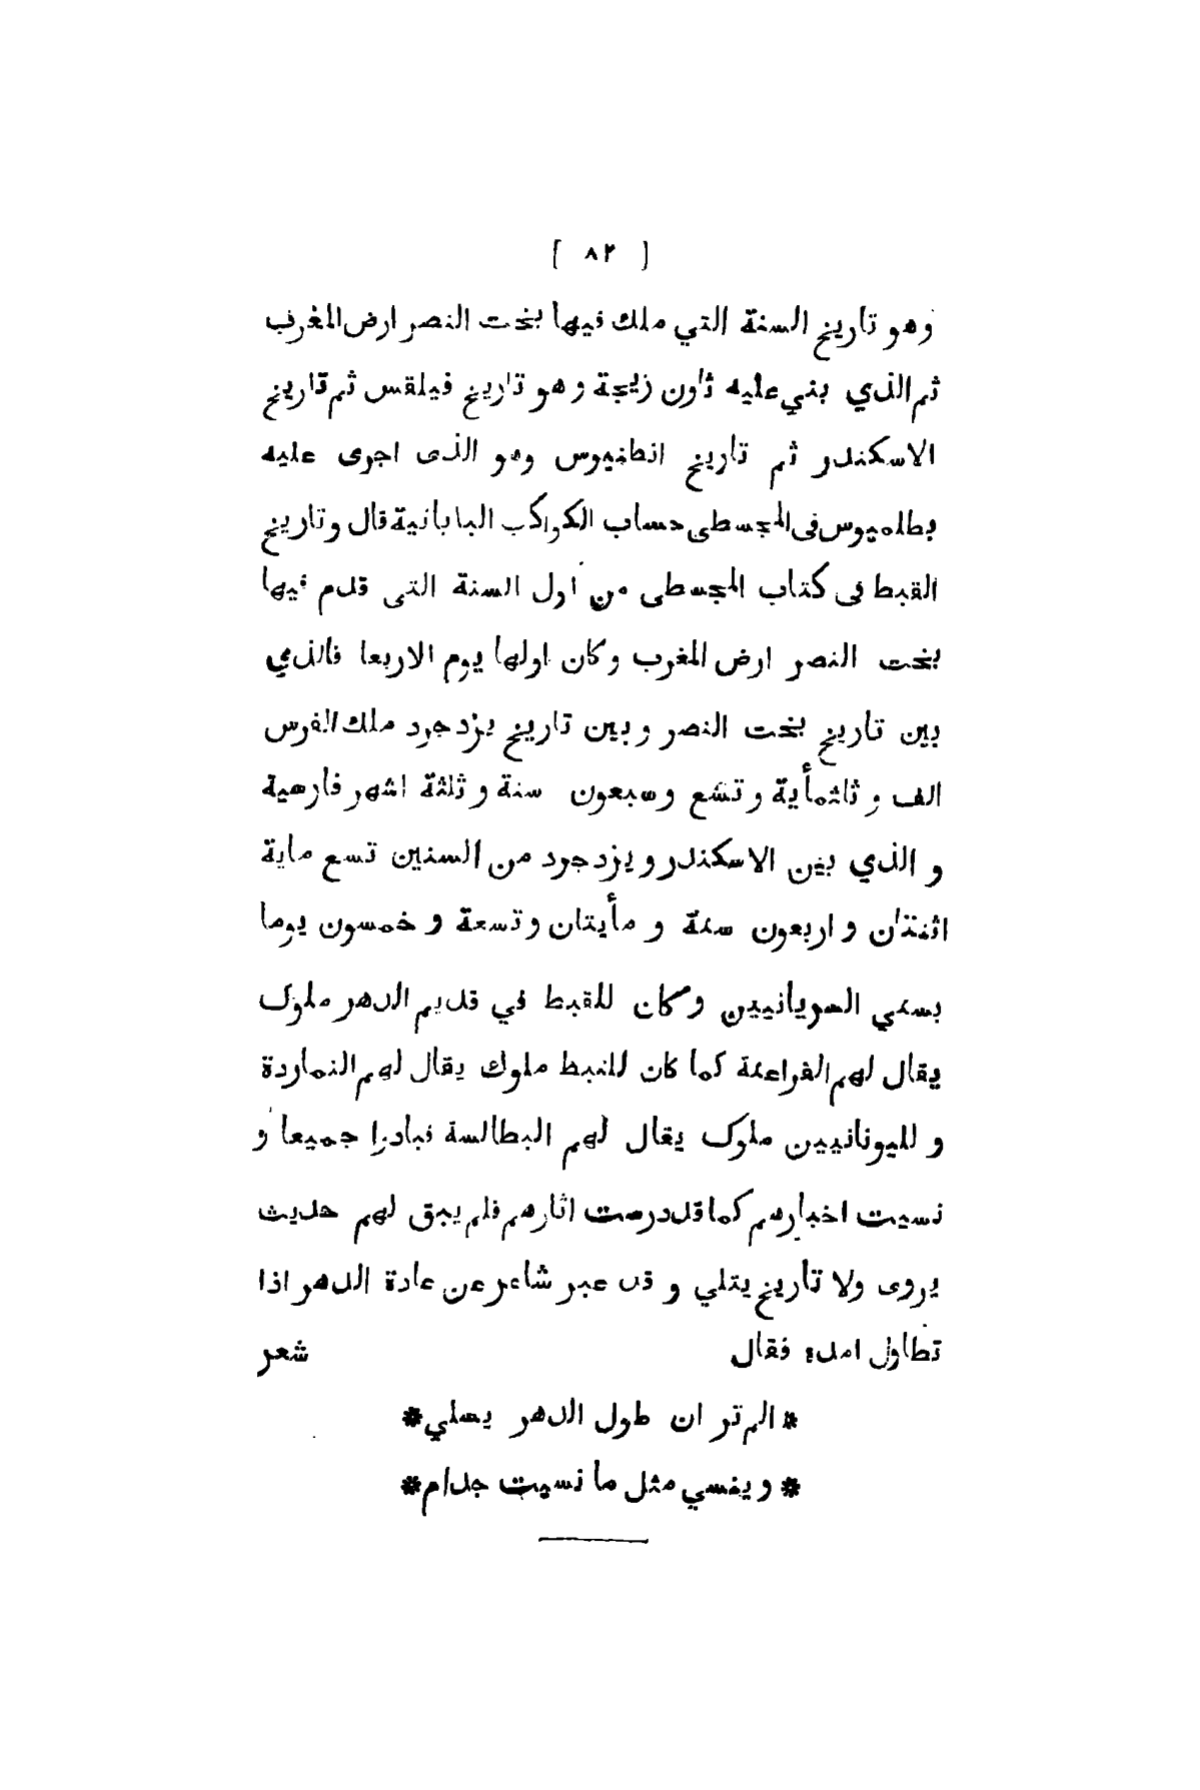 [ ٨٢ ]
وهو تاريخ السنة التي ملك فيها بخت النصر ارض المغرب
ثم الذي بني عليه ثاون زيجة وهو تاريخ فيلقس ثم تاريخ
الاسكندر ثم تاريخ انطنيوس وهو الذى اجرى عليه
بطلميوس فى المجسطى حساب الكواكب البابانية قال وتاريخ
القبط فى كتاب المجسطى من اول السنة التى قدم فيها
بخت النصر ارض المغرب وكان اولها يوم الاربعا فالذي
بين تاريخ بخت النصر وبين تاريخ يزدجرد ملك الفرس
الف و ثلثمأية و تسع وسبعون سنة و ثلثة اشهر فارسية
و الذي بين الاسكندر و يزدجرد من السنين تسع ماية
اثنتان و اربعون سنة و مأيتان و تسعة و خمسون يوما
بسني السريانيين وكان للقبط في قديم الدهر ملوك
يقال لهم الفراعنة كما كان للنبط ملوك يقال لهم النماردة
و لليونانيين ملوك يقال لهم البطالسة فبادوا جميعا و
نسيت اخبارهم كما قد درست اثارهم فلم يبق لهم حديث
يروى ولا تأريخ يتلي و قد عبر شاعر عن عادة الدهر اذا
تطاول امده فقال شعر
* الم تر ان طول الدهر يسلي *
* و ينسي مثل ما نسيت جدام *